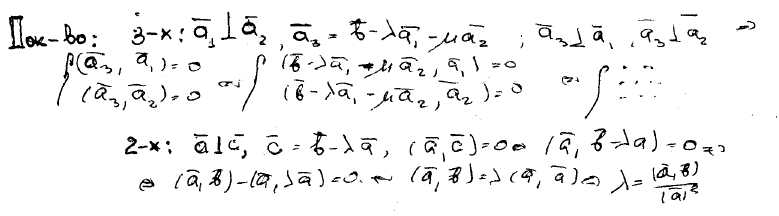 Док-во: 3-х: a̅₁ ⊥ a̅₂, a̅₃ = b̅ - λa̅₁ - μa̅₂ ; a̅₃ ⊥ a̅₁, a̅₃ ⊥ a̅₂ ⇒
{ (a̅₃, a̅₁) = 0 ⇔ { (b̅ - λa̅₁ - μa̅₂, a̅₁) = 0 ⇔ { ......
(a̅₃, a̅₂) = 0 (b̅ - λa̅₁ - μa̅₂, a̅₂) = 0 ......
2-х: a̅ ⊥ c̅, c̅ = b̅ - λa̅, (a̅, c̅) = 0 ⇔ (a̅, b̅ - λa) = 0 ⇔
⇔ (a̅, b̅) - (a̅, λa̅) = 0 ⇔ (a̅, b̅) = λ(a̅, a̅) ⇔ λ = (a̅, b̅) / |a̅|²